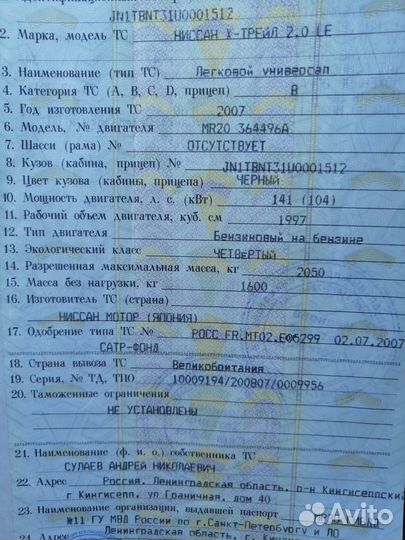 JN1TBNT31U0001512
2. Марка, модель ТС НИССАН X-ТРЕЙЛ 2,0 LE
3. Наименование (тип ТС) Легковой универсал
4. Категория ТС (A, B, C, D, прицеп) B
5. Год изготовления ТС 2007
6. Модель, № двигателя MR20 364496A
7. Шасси (рама) № ОТСУТСТВУЕТ
8. Кузов (кабина, прицеп) № JN1TBNT31U0001512
9. Цвет кузова (кабины, прицепа) ЧЕРНЫЙ
10. Мощность двигателя, л. с. (кВт) 141 (104)
11. Рабочий объем двигателя, куб. см 1997
12. Тип двигателя Бензиновый на бензине
13. Экологический класс ЧЕТВЕРТЫЙ
14. Разрешенная максимальная масса, кг 2050
15. Масса без нагрузки, кг 1600
16. Изготовитель ТС (страна)
НИССАН МОТОР (ЯПОНИЯ)
17. Одобрение типа ТС № РОСС FR.МТ02.Е06299 02.07.2007
САТР-ФОНД
18. Страна вывоза ТС Великобритания
19. Серия, № ТД, ТПО 10009194/200807/0009956
20. Таможенные ограничения
НЕ УСТАНОВЛЕНЫ
21. Наименование (ф. и. о.) собственника ТС
СУЛАЕВ АНДРЕЙ НИКОЛАЕВИЧ
22. Адрес Россия, Ленинградская область, р-н Кингисеппский
г Кингисепп, ул Граничная, дом 40
23. Наименование организации, выдавшей паспорт
№11 ГУ МВД России по г.Санкт-Петербургу и ЛО
24. Адрес Ленинградская область, г.
Avito